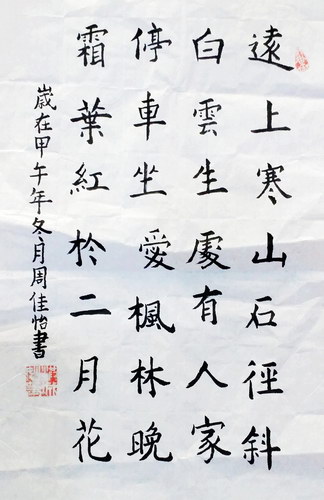 遠上寒山石徑斜
白雲生處有人家
停車坐愛楓林晚
霜葉紅於二月花
歲在甲午年冬月周佳怡書